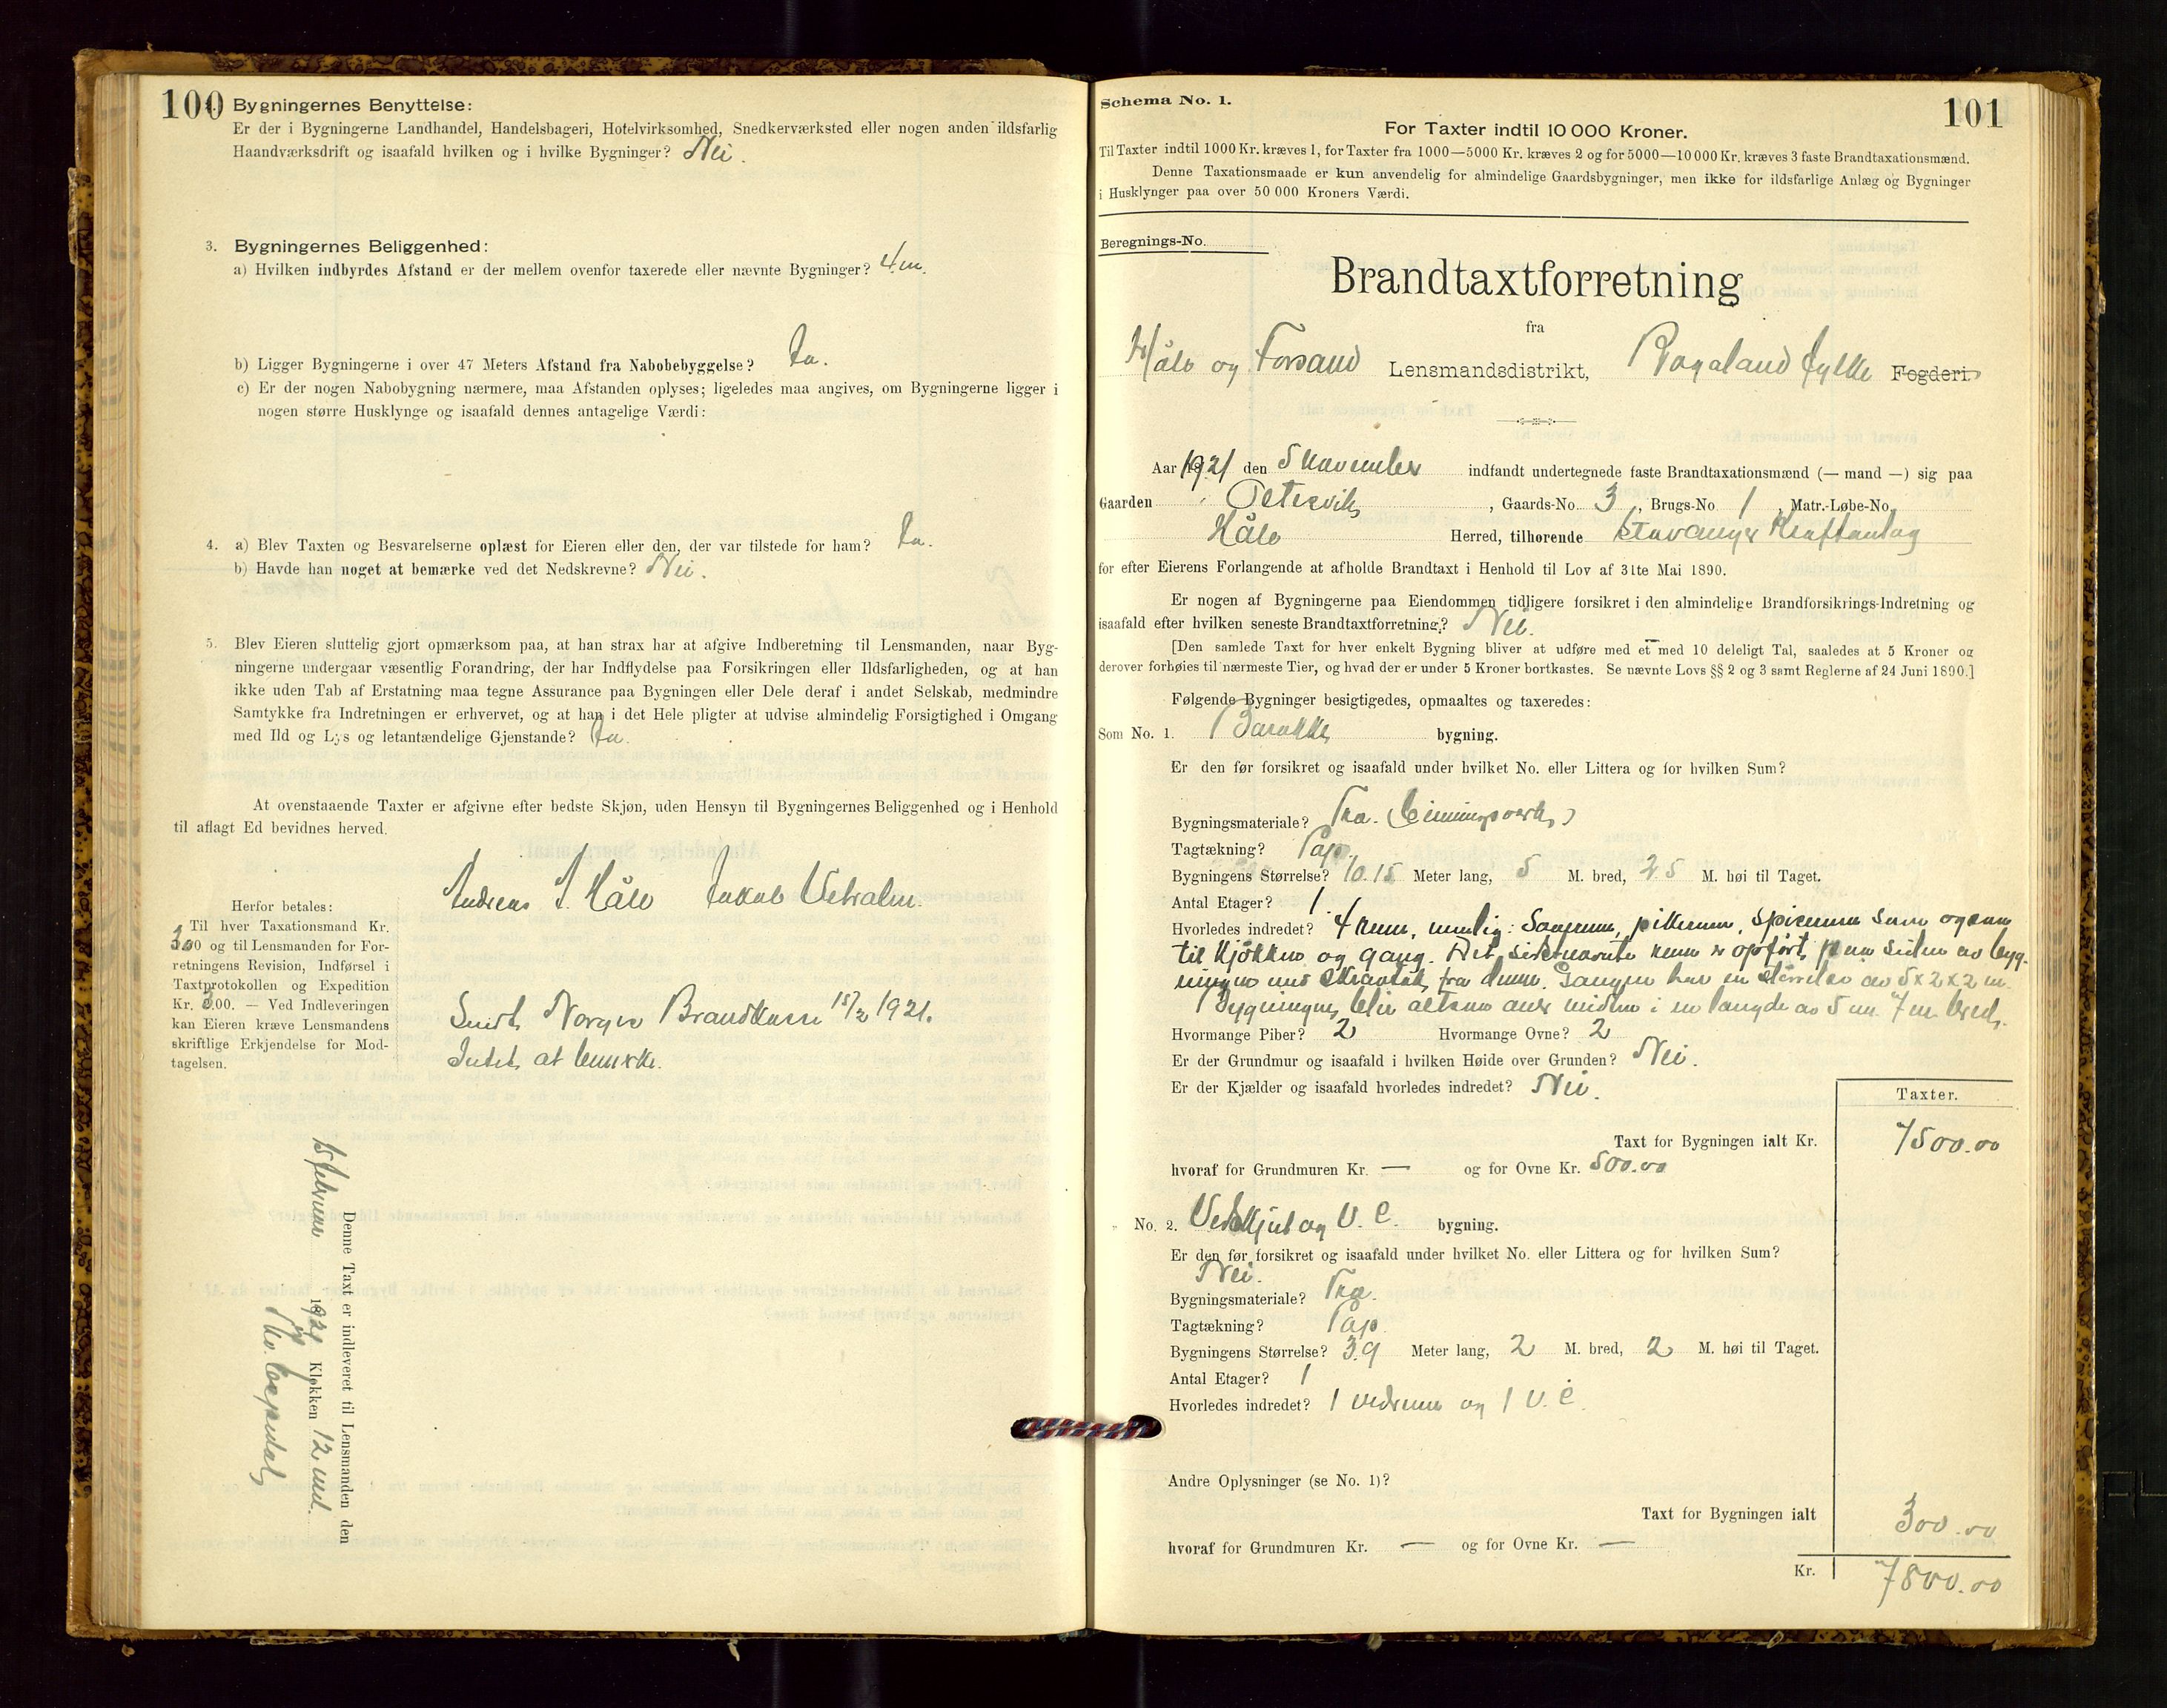 100 Bygningernes Benyttelse:
Er der i Bygningerne Landhandel, Handelsbageri, Hotelvirksomhed, Snedkerværksted eller nogen anden ildsfarlig
Haandværksdrift og isaafald hvilken og i hvilke Bygninger? Nei.
3. Bygningernes Beliggenhed:
a) Hvilken indbyrdes Afstand er der mellem ovenfor taxerede eller nævnte Bygninger? 4 m.
b) Ligger Bygningerne i over 47 Meters Afstand fra Nabobebyggelse? Ja.
c) Er der nogen Nabobygning nærmere, maa Afstanden oplyses; ligeledes maa angives, om Bygningerne ligger i
nogen større Husklynge og isaafald dennes antagelige Værdi:
4. a) Blev Taxten og Besvarelserne oplæst for Eieren eller den, der var tilstede for ham? Ja.
b) Havde han noget at bemærke ved det Nedskrevne? Nei.
5. Blev Eieren sluttelig gjort opmærksom paa, at han strax har at afgive Indberetning til Lensmanden, naar Byg-
ningerne undergaar væsentlig Forandring, der har Indflydelse paa Forsikringen eller Ildsfarligheden, og at han
ikke uden Tab af Erstatning maa tegne Assurance paa Bygningen eller Dele deraf i andet Selskab, medmindre
Samtykke fra Indretningen er erhvervet, og at han i det Hele pligter at udvise almindelig Forsigtighed i Omgang
med Ild og Lys og letantændelige Gjenstande? Ja.
At ovenstaaende Taxter er afgivne efter bedste Skjøn, uden Hensyn til Bygningernes Beliggenhed og i Henhold
til aflagt Ed bevidnes herved.
Andreas Håle Jakob
Herfor betales:
Til hver Taxationsmand Kr.
3.00 og til Lensmanden for For-
retningens Revision, Indførsel i
Taxtprotokollen og Expedition
Kr. 3.00. — Ved Indleveringen
kan Eieren kræve Lensmandens
skriftlige Erkjendelse for Mod-
tagelsen.
Sendt Norges Brandkasse 15/2 1921.
Intet at bemerke.
Denne Taxt er indleveret til Lensmanden den
15 februar 1921 Klokken 12 md.
Schema No. 1.
101
For Taxter indtil 10 000 Kroner.
Til Taxter indtil 1000 Kr. kræves 1, for Taxter fra 1000—5000 Kr. kræves 2 og for 5000—10 000 Kr. kræves 3 faste Brandtaxationsmænd.
Denne Taxationsmaade er kun anvendelig for almindelige Gaardsbygninger, men ikke for ildsfarlige Anlæg og Bygninger
i Husklynger paa over 50 000 Kroners Værdi.
Beregnings-No.
Brandtaxtforretning
fra
Håle og Forsand Lensmandsdistrikt, Rogaland fylke Fogderi
Aar 1921 den 5 november indfandt undertegnede faste Brandtaxationsmænd (— mand —) sig paa
Gaarden , Gaards-No. 3, Brugs-No 1, Matr.-Løbe-No.
Håle Herred, tilhørende Stavanger Kraftanlag
for efter Eierens Forlangende at afholde Brandtaxt i Henhold til Lov af 31te Mai 1890.
Er nogen af Bygningerne paa Eiendommen tidligere forsikret i den almindelige Brandforsikrings-Indretning og
isaafald efter hvilken seneste Brandtaxtforretning? Nei.
[Den samlede Taxt for hver enkelt Bygning bliver at udføre med et med 10 deleligt Tal, saaledes at 5 Kroner og
derover forhøies til nærmeste Tier, og hvad der er under 5 Kroner bortkastes. Se nævnte Lovs §§ 2 og 3 samt Reglerne af 24 Juni 1890.]
Følgende Bygninger besigtigedes, opmaaltes og taxeredes:
Som No. 1. Barakke bygning.
Er den før forsikret og isaafald under hvilket No. eller Littera og for hvilken Sum?
Bygningsmateriale? Træ. (Binningsverk)
Tagtækning? Pap.
Bygningens Størrelse? 10.15 Meter lang, 5 M. bred, 2.5 M. høi til Taget.
Antal Etager? 1
Hvorledes indredet? 4 rum, nemlig: Soverum, pikerum, spiserum samt ogsaa
til kjøkken og gang. Det sidstnævnte rum er opført paa siden av byg-
ningen med fra denne. Gangen har en størrelse av 5 x 2 x 2 m.
Bygningen blir altsaa over midten i en længde av 5 m. 7 m. bred.
Hvormange Piber? 2 Hvormange Ovne? 2
Er der Grundmur og isaafald i hvilken Høide over Grunden? Nei.
Er der Kjælder og isaafald hvorledes indredet? Nei.
Taxter.
Taxt for Bygningen ialt Kr. 7500.00
hvoraf for Grundmuren Kr. — og for Ovne Kr. 500.00
No. 2. Vedskjul og V.C. bygning.
Er den før forsikret og isaafald under hvilket No. eller Littera og for hvilken Sum?
Nei.
Bygningsmateriale? Træ.
Tagtækning? Pap.
Bygningens Størrelse? 3.9 Meter lang, 2 M. bred, 2 M. høi til Taget.
Antal Etager? 1
Hvorledes indredet? 1 vedrum og 1 V.C.
Andre Oplysninger (se No. 1)?
Taxt for Bygningen ialt 300.00
hvoraf for Grundmuren Kr. — og for Ovne Kr. —
Kr. 7800.00